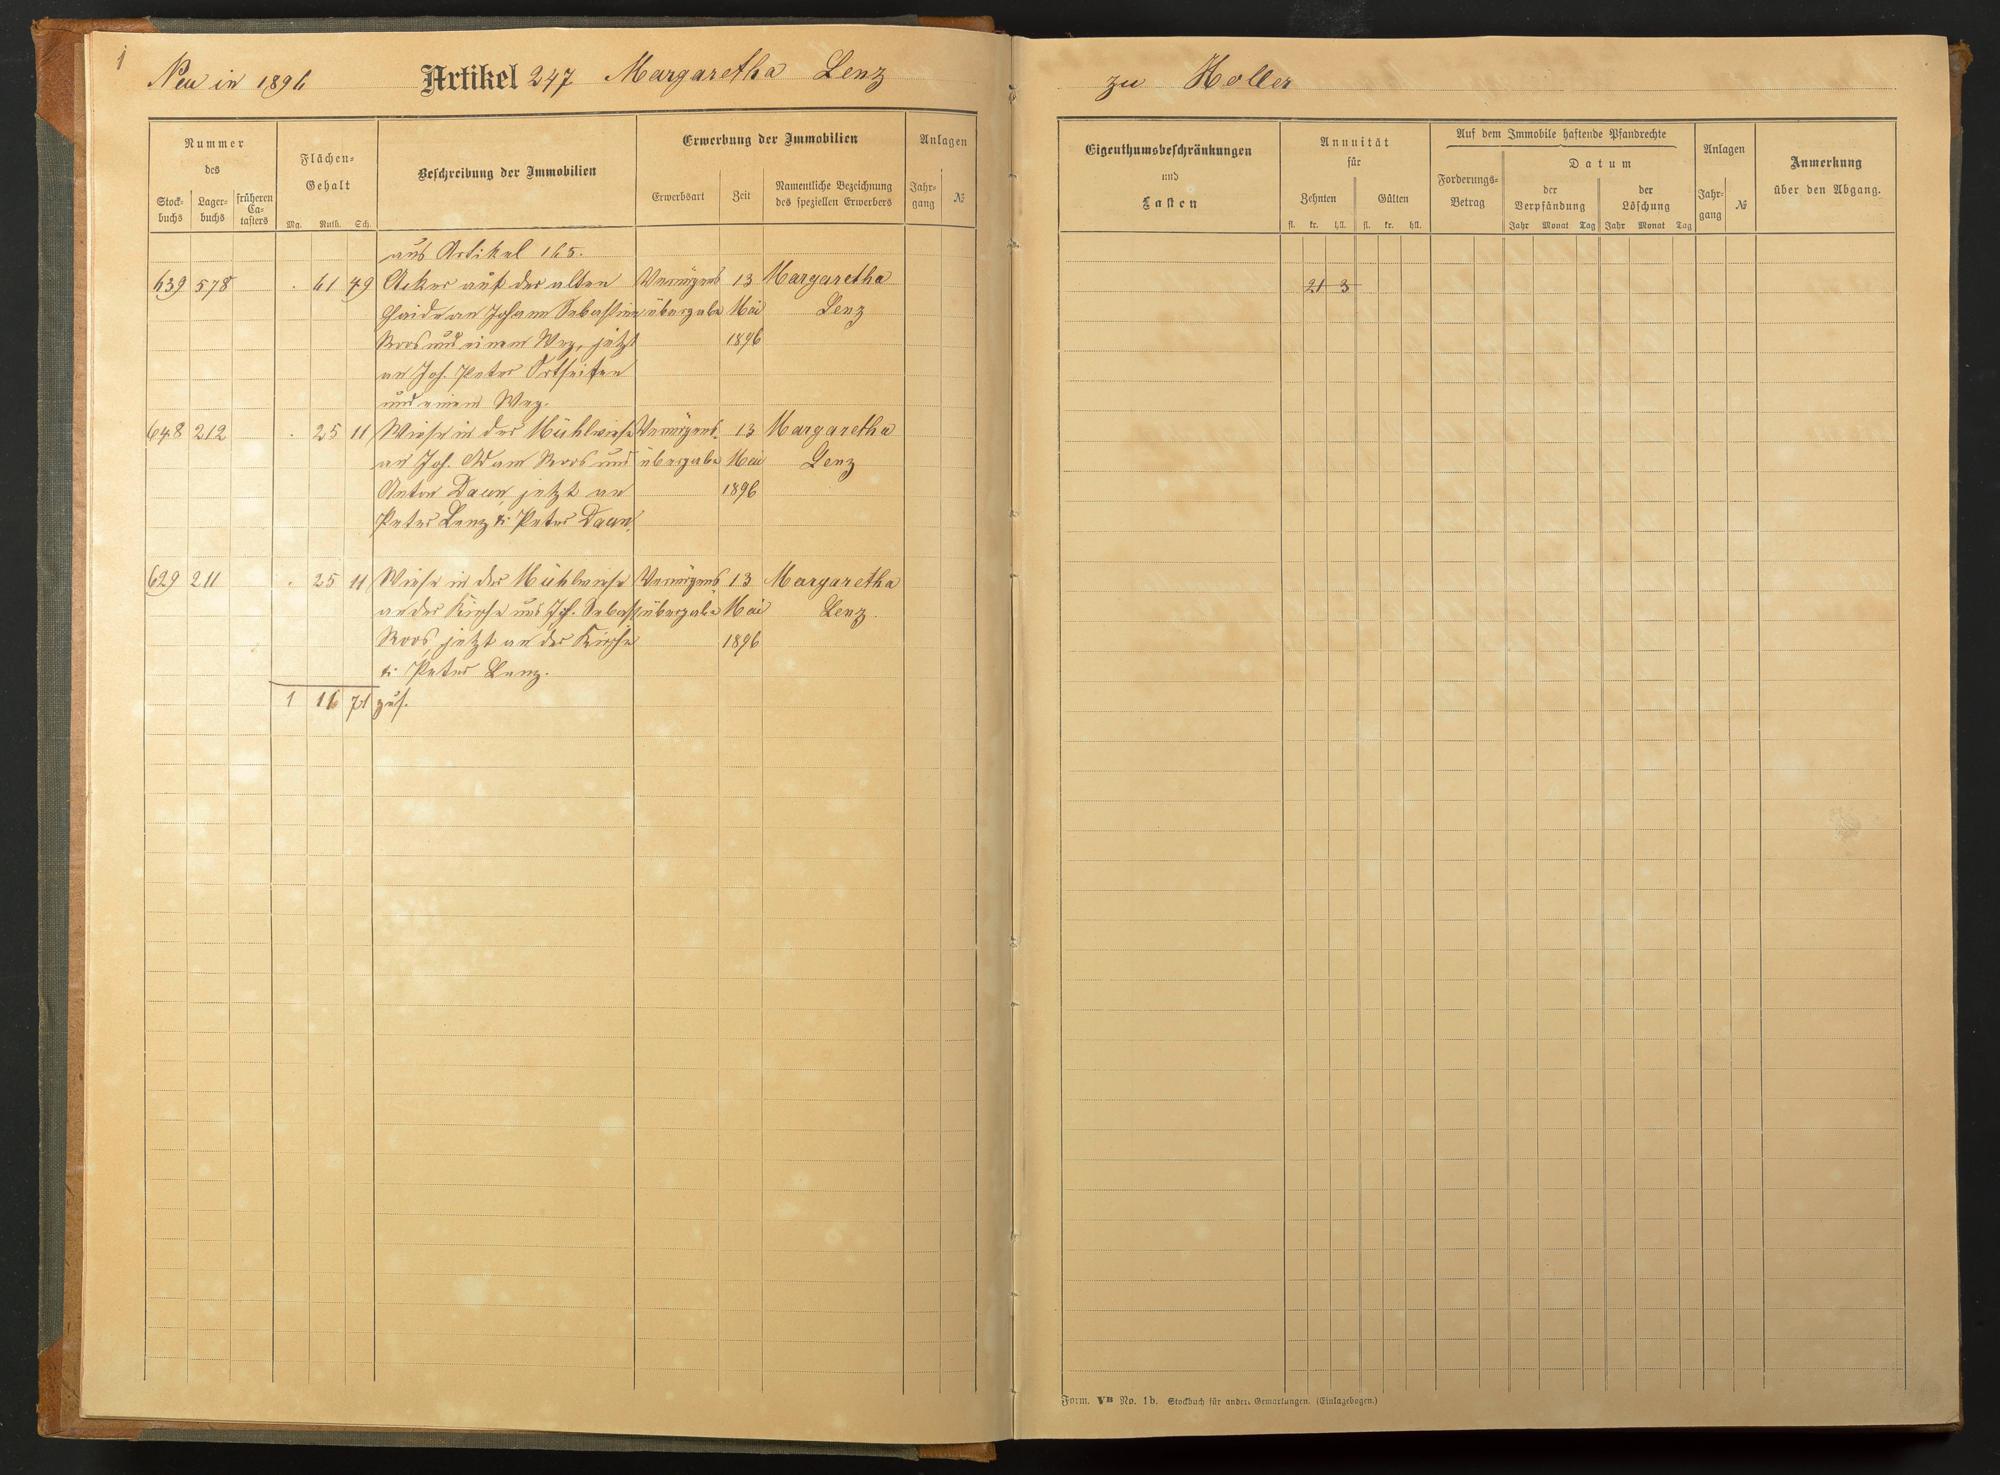 1
Neu in 1896 Artikel 247 Margaretha Lenz
Nummer des
Stock-buchs
Lager-buchs
früheren Ca-tasters
Flächen-Gehalt
Mg. Ruth. Sch.
Beschreibung der Immobilien
Erwerbung der Immobilien
Erwerbsart
Zeit
Namentliche Bezeichnung des speziellen Erwerbers
Anlagen
Jahr-gang
№
aus Artikel 165.
639 578 . 61 49 Acker auf der alten Vermögens 13 Margaretha
Haide an Johann Sebastian übergabe Mai Lenz
Roos und einem Weg, jetzt 1896
an Joh. Peter Ortseifen
und einem Weg.
648 212 . 25 11 Wiese in der Mühlwiese Vermögens- 13 Margaretha
an Joh. Adam Roos und übergabe Mai Lenz
Anton Daun, jetzt an 1896
Peter Lenz & Peter Daun.
629 211 . 25 11 Wiese in der Mühlwiese Vermögens 13 Margaretha
an der Kirche und Joh. Sebast. übergabe Mai Lenz.
Roos, jetzt an der Kirche 1896
& Peter Lenz.
1 11 71 zus.
zu Holler
Eigenthumsbeschränkungen
und
Lasten
Annuität
für
Zehnten
Gülten
fl. kr. hll. fl. kr. hll.
Auf dem Immobile haftende Pfandrechte
Forderungs-Betrag
Datum
der Verpfändung
der Löschung
Jahr Monat Tag Jahr Monat Tag
Anlagen
Jahr-gang
№
Anmerkung
über den Abgang.
21 3
Form. VB No. 1b. Stockbuch für andere Gemarkungen. (Einlagebogen.)